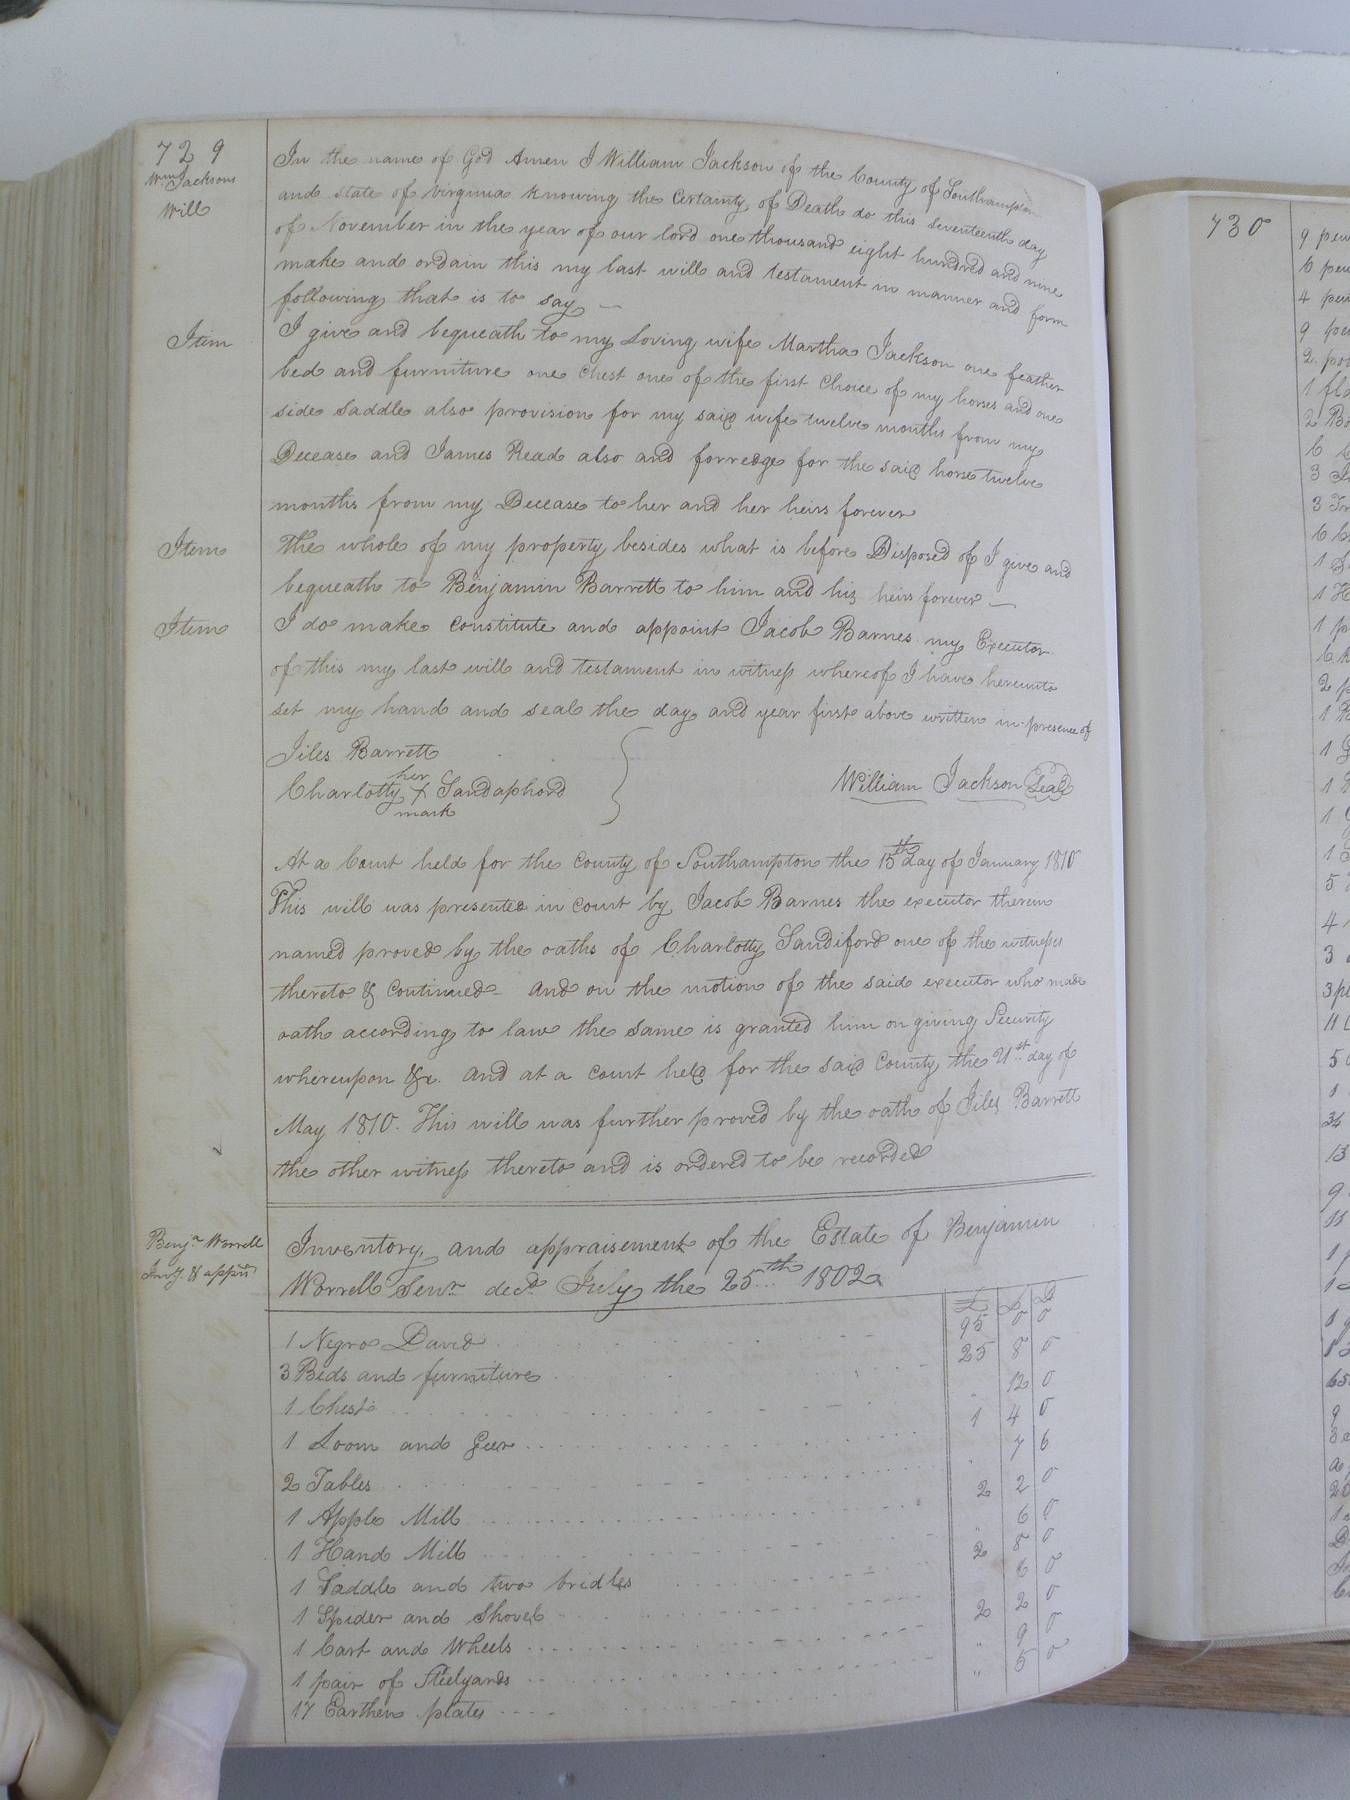 729
Wm Jacksons
Will
In the name of God Amen I William Jackson of the County of Southampton
and state of virginia knowing the Certainty of Death do this seventeenth day
of November in the year of our lord one thousand eight hundred and nine
make and ordain this my last will and testament in manner and form
following that is to say
Item I give and bequeath to my Loving wife Martha Jackson one feather
bed and furniture one Chest one of the first Choice of my horses and one
side Saddle also provision for my said wife twelve months from my
Decease and James Read also and forredge for the said horse twelve
months from my Decease to her and her heirs forever
Item The whole of my property besides what is before Disposed of I give and
bequeath to Benjamin Barrett to him and his heirs forever
Item I do make Constitute and appoint Jacob Barnes my Executor
of this my last will and testament in witness whereof I have hereunto
set my hand and seal the day and year first above written in presence of
Jiles Barrett
Charlotty her X mark Sandaphord
William Jackson Seal
At a Court held for the County of Southampton the 15th day of January 1810
This will was presented in Court by Jacob Barnes the executor therein
named proved by the oaths of Charlotty Sandiford one of the witnesses
thereto & Continued - And on the motion of the said executor who made
oath according to law the same is granted him on giving Security
whereupon &c. And at a Court held for the said County the 21st day of
May 1810. This will was further proved by the oath of Jiles Barrett
the other witness thereto and is ordered to be recorded
Benjn Worrell
Invy. & appmt
Inventory and appraisement of the Estate of Benjamin
Worrell Senr decd July the 25th 1802
£ S D
1 Negro David 95 0 0
3 Beds and furniture 25 8 0
1 Chest 12 0
1 Loom and Geer 1 4 0
2 Tables 7 6
1 Apple Mill 2 2 0
1 Hand Mill 6 0
1 Saddle and two bridles 2 8 0
1 Spider and Shovel 6 0
1 Cart and Wheels 2 2 0
1 pair of Stielyards " 9 0
17 Earthen plates " 5 0
730
9
6
4
9
2
1
2
6
3
3
6
1
1
1
6
2
1
1
1
1
1
5
4
3
3
11
5
1
34
13
9
11
1
1
1